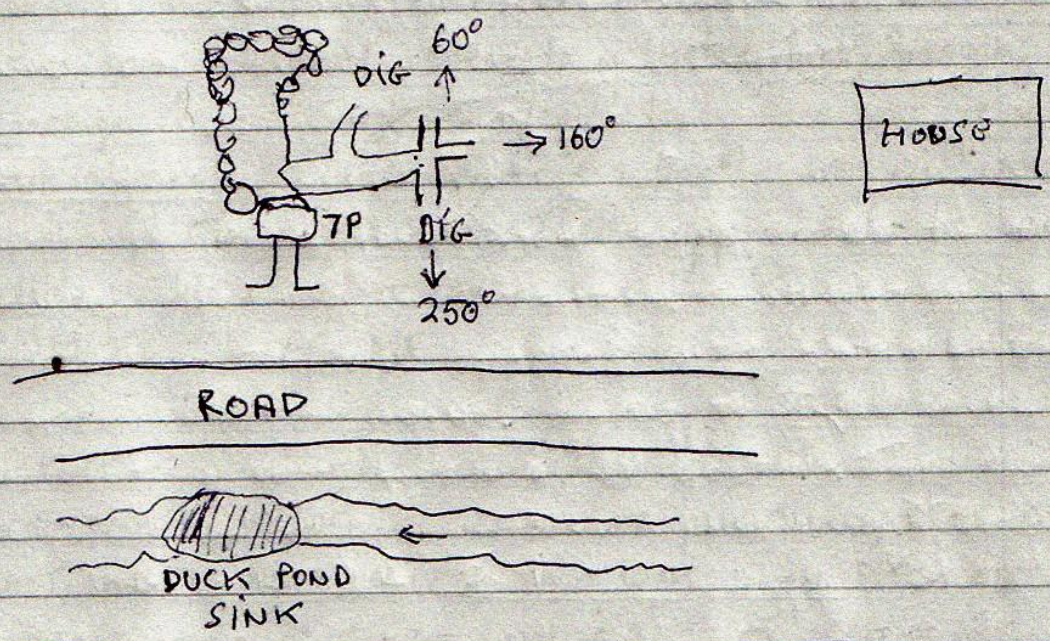 60°
DIG
→ 160°
HOUSE
7P
DIG
250°
ROAD
DUCK POND
SINK